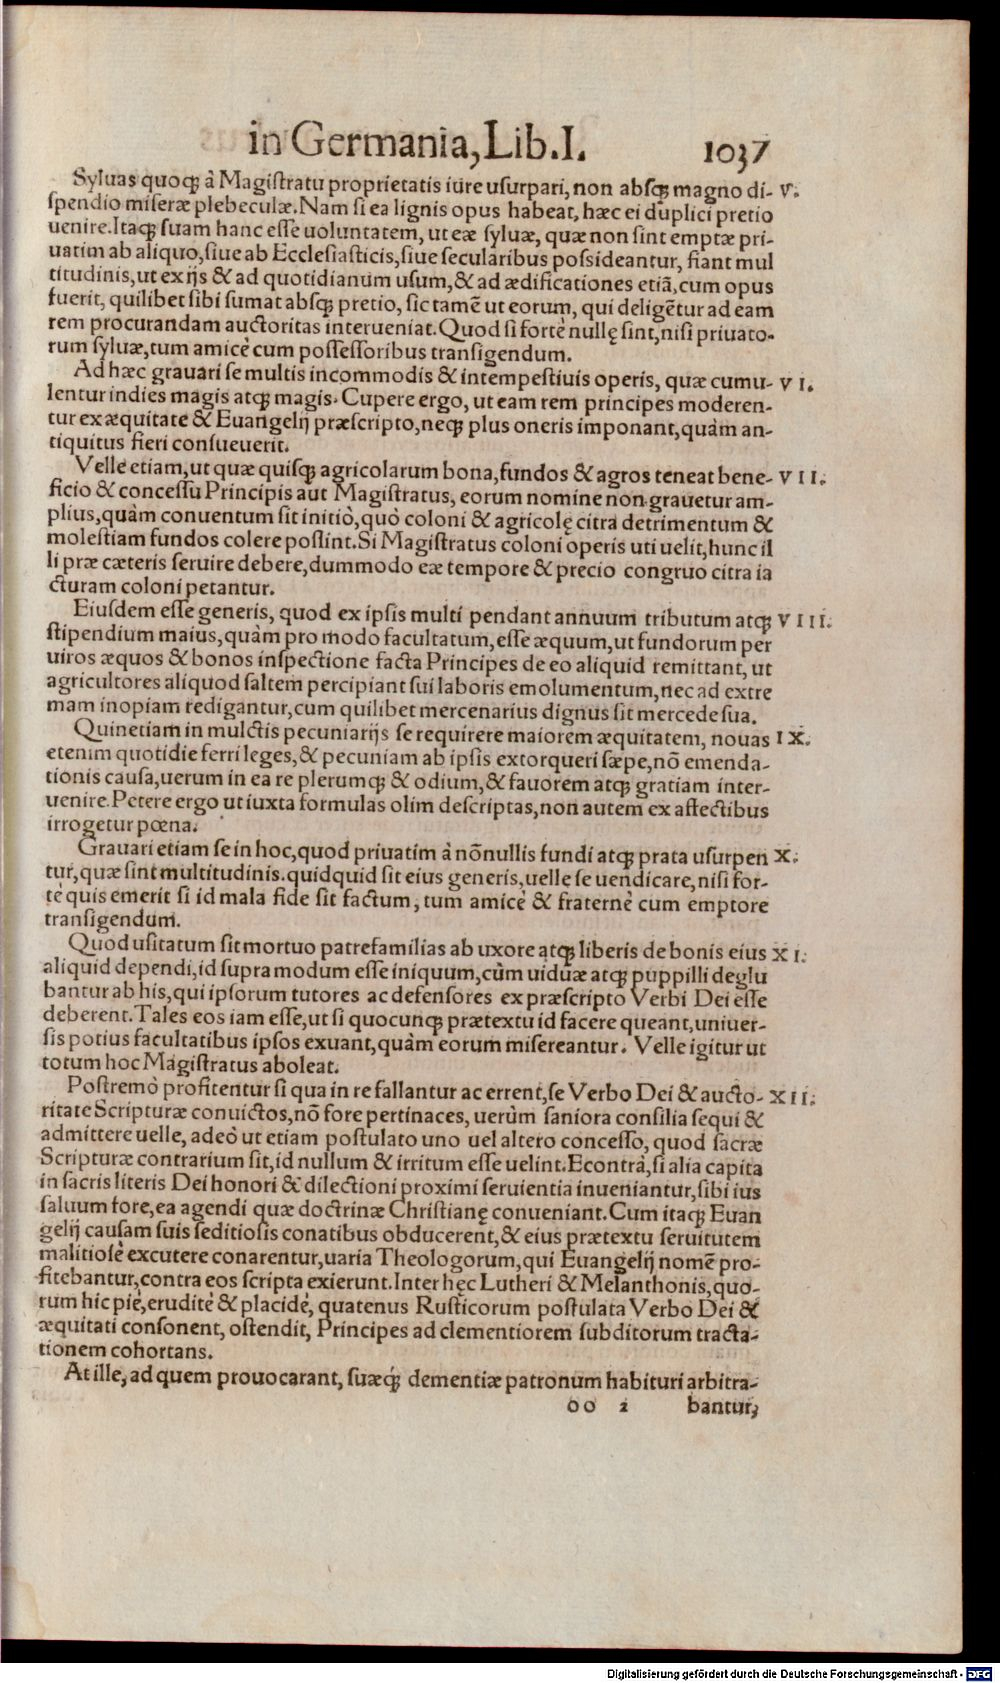 in Germania, Lib. I. 1037
Syluas quoqꝫ à Magiſtratu proprietatis iure uſurpari, non abſqꝫ magno di- V.
ſpendio miſeræ plebeculæ. Nam ſi ea lignis opus habeat, hæc ei duplici pretio
uenire. Itaqꝫ ſuam hanc eſſe uoluntatem, ut eæ ſyluæ, quæ non ſint emptæ pri-
uatim ab aliquo, ſiue ab Eccleſiaſticis, ſiue ſecularibus poſsideantur, fiant mul
titudinis, ut ex ijs & ad quotidianum uſum, & ad ædificationes etiã, cum opus
fuerit, quilibet ſibi ſumat abſqꝫ pretio, ſic tamẽ ut eorum, qui deligẽtur ad eam
rem procurandam auctoritas interueniat. Quod ſi fortè nullę ſint, niſi priuato-
rum ſyluæ, tum amicè cum poſſeſſoribus tranſigendum.
Ad hæc grauari ſe multis incommodis & intempeſtiuis operis, quæ cumu- VI.
lentur indies magis atqꝫ magis. Cupere ergo, ut eam rem principes moderen-
tur ex æquitate & Euangelij præſcripto, neqꝫ plus oneris imponant, quàm an-
tiquitus fieri conſueuerit.
Velle etiam, ut quæ quiſqꝫ agricolarum bona, fundos & agros teneat bene- VII.
ficio & conceſſu Principis aut Magiſtratus, eorum nomine non grauetur am-
plius, quàm conuentum ſit initiò, quò coloni & agricolę citra detrimentum &
moleſtiam fundos colere poſsint. Si Magiſtratus coloni operis uti uelit, hunc il
li præ cæteris ſeruire debere, dummodo eæ tempore & precio congruo citra ia
cturam coloni petantur.
Eiuſdem eſſe generis, quod ex ipſis multi pendant annuum tributum atqꝫ VIII.
ſtipendium maius, quàm pro modo facultatum, eſſe æquum, ut fundorum per
uiros æquos & bonos inſpectione facta Principes de eo aliquid remittant, ut
agricultores aliquod ſaltem percipiant ſui laboris emolumentum, nec ad extre
mam inopiam redigantur, cum quilibet mercenarius dignus ſit mercede ſua.
Quinetiam in mulctis pecuniarijs ſe requirere maiorem æquitatem, nouas IX.
etenim quotidie ferri leges, & pecuniam ab ipſis extorqueri ſæpe, nõ emenda-
tionis cauſa, uerum in ea re plerumqꝫ & odium, & fauorem atqꝫ gratiam inter-
uenire. Petere ergo ut iuxta formulas olim deſcriptas, non autem ex affectibus
irrogetur pœna.
Grauari etiam ſe in hoc, quod priuatim à nõnullis fundi atqꝫ prata uſurpen X.
tur, quæ ſint multitudinis. quidquid ſit eius generis, uelle ſe uendicare, niſi for-
tè quis emerit ſi id mala fide ſit factum, tum amicè & fraternè cum emptore
tranſigendum.
Quod uſitatum ſit mortuo patrefamilias ab uxore atqꝫ liberis de bonis eius XI.
aliquid dependi, id ſupra modum eſſe iniquum, cùm uiduæ atqꝫ puppilli deglu
bantur ab his, qui ipſorum tutores ac defenſores ex præſcripto Verbi Dei eſſe
deberent. Tales eos iam eſſe, ut ſi quocunqꝫ prætextu id facere queant, uniuer-
ſis potius facultatibus ipſos exuant, quàm eorum miſereantur. Velle igitur ut
totum hoc Magiſtratus aboleat.
Poſtremò profitentur ſi qua in re fallantur ac errent, ſe Verbo Dei & aucto- XII.
ritate Scripturæ conuictos, nõ fore pertinaces, uerùm ſaniora conſilia ſequi &
admittere uelle, adeò ut etiam poſtulato uno uel altero conceſſo, quod ſacræ
Scripturæ contrarium ſit, id nullum & irritum eſſe uelint. Econtrà, ſi alia capita
in ſacris literis Dei honori & dilectioni proximi ſeruientia inueniantur, ſibi ius
ſaluum fore, ea agendi quæ doctrinæ Chriſtianę conueniant. Cum itaqꝫ Euan
gelij cauſam ſuis ſeditioſis conatibus obducerent, & eius prætextu ſeruitutem
malitioſè excutere conarentur, uaria Theologorum, qui Euangelij nomẽ pro-
fitebantur, contra eos ſcripta exierunt. Inter hęc Lutheri & Melanthonis, quo-
rum hic piè, eruditè & placidè, quatenus Ruſticorum poſtulata Verbo Dei &
æquitati conſonent, oſtendit, Principes ad clementiorem ſubditorum tracta-
tionem cohortans.
At ille, ad quem prouocarant, ſuæqꝫ́ dementiæ patronum habituri arbitra-
oo 2 bantur,
Digitalisierung gefördert durch die Deutsche Forschungsgemeinschaft - DFG